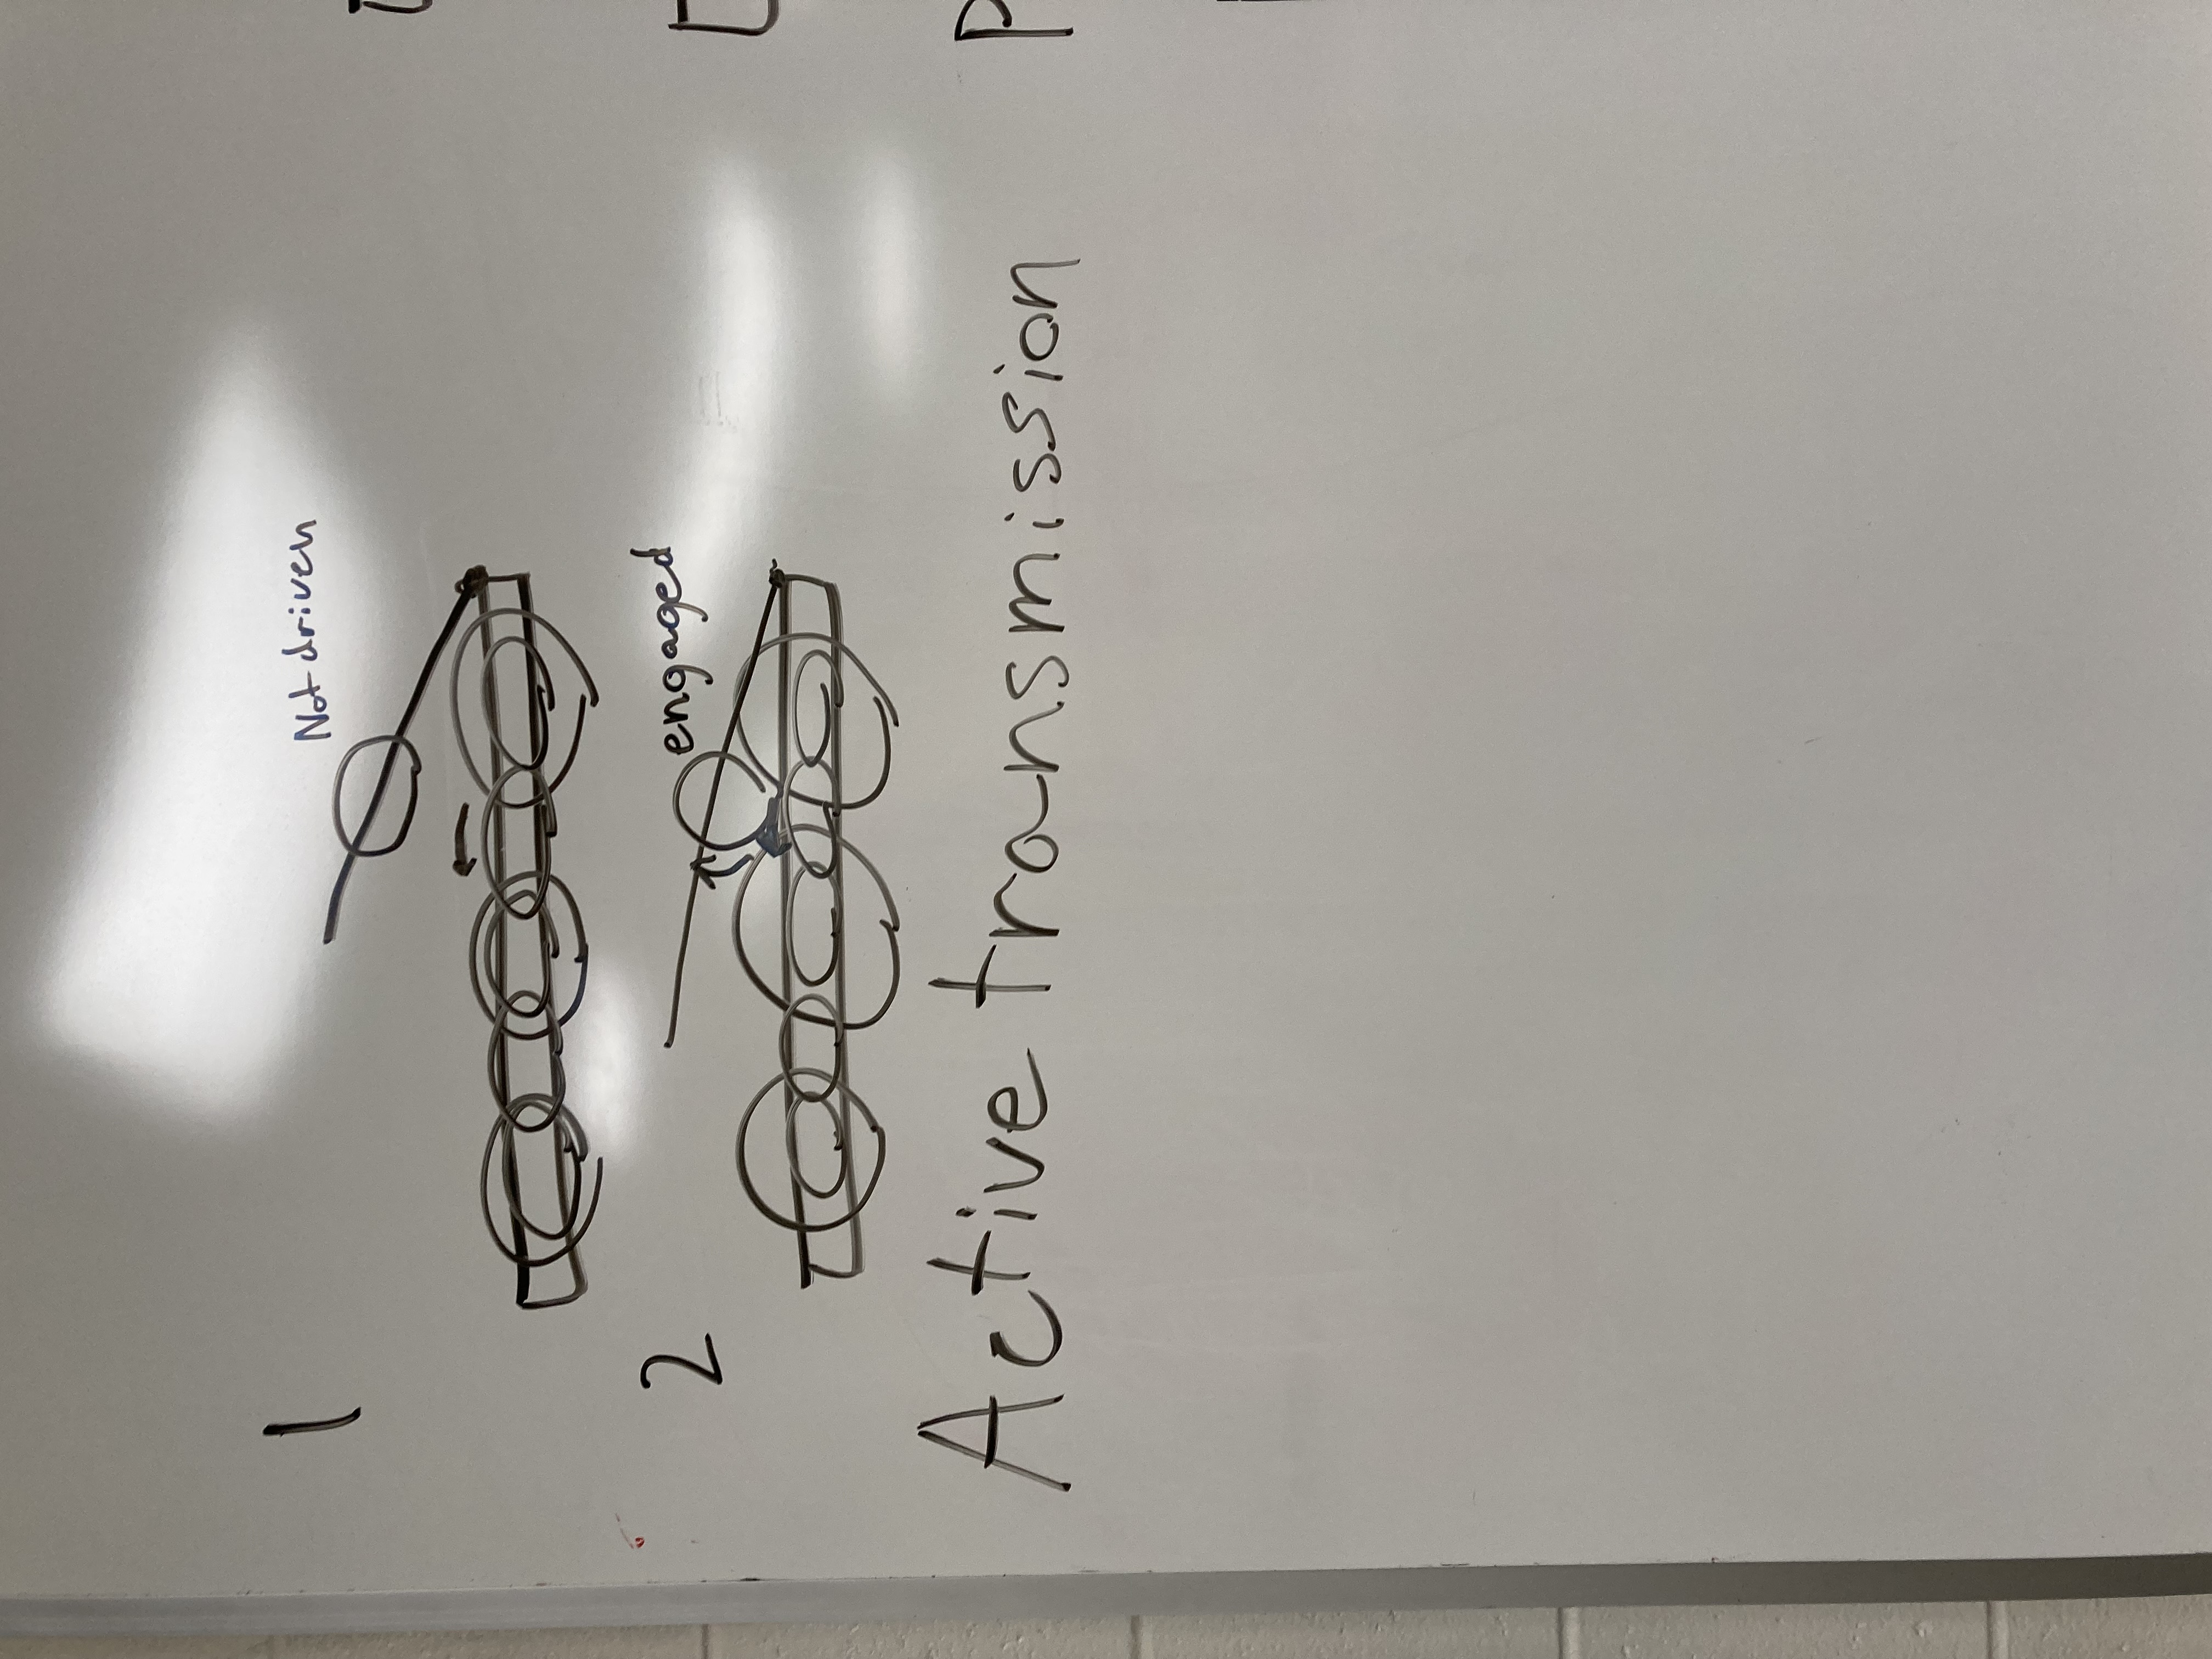 1
Not driven
2
engaged
Active transmission
P